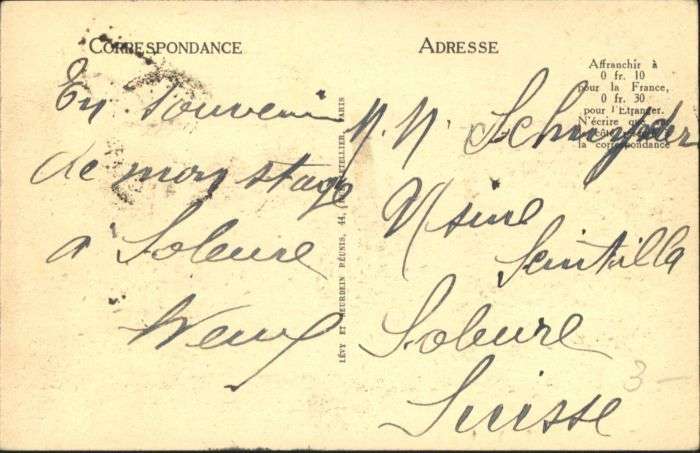 CORRESPONDANCE
En souvenir
de mon stage
a Soleure
ADRESSE
Affranchir à
0 fr. 10
pour la France,
0 fr. 30
pour l'Etranger.
N'écrire que
côté
la correspondance
LÉVY ET NEURDEIN RÉUNIS, 44, LETELLIER, PARIS
Schnyder
Usine
Scintilla
Soleure
Suisse
3-